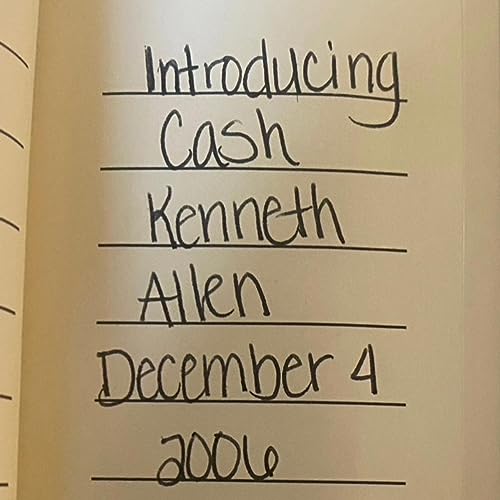 Introducing
Cash
Kenneth
Allen
December 4
2006